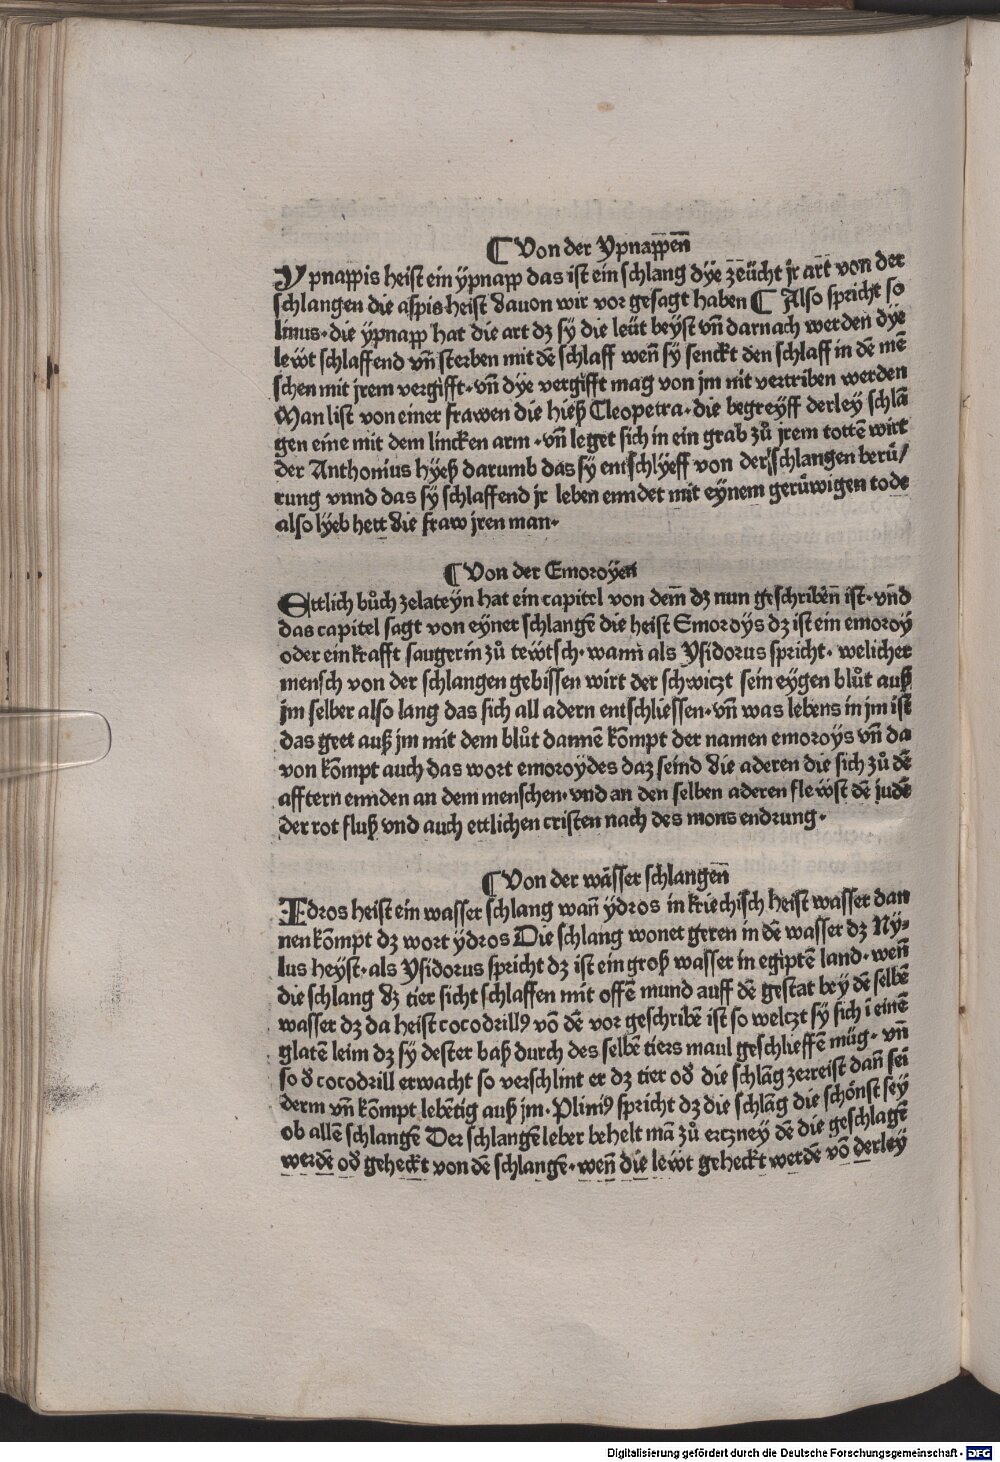 ¶ Von der Ypnappen̄
Ypnappis heist ein ÿpnapp das ist ein schlang dÿe zeücht jr art von der
schlangen die aspis heist dauon wir vor gesagt haben ¶ Also spricht so
linus· die ÿpnapp hat die art dz sÿ die leüt beÿst vn̄ darnach werden dÿe
lewt schlaffend vn̄ sterben mit dē schlaff wen̄ sÿ senckt den schlaff in dē mē
schen mit jrem vergifft· vn̄ dÿe vergifft mag von jm nit vertriben werden
Man list von einer frawen die hieß Cleopetra· die begreÿff derley schlā
gen eine mit dem lincken arm ·vn̄ leget sich in ein grab zů jrem tottē wirt
der Anthonius hÿeß darumb das sÿ entschlÿeff von der schlangen berü/
rung vnnd das sÿ schlaffend jr leben enndet mit eÿnem gerüwigen tode
also lÿeb hett die fraw jren man·
¶ Von der Emoroÿen
Ettlich bůch zelateÿn hat ein capitel von dem̄ dz nun geschriben̄ ist· vn̄d
das capitel sagt von eÿner schlangē die heist Emoroÿs dz ist ein emoroÿ
oder ein krafft saugerin zů tewtsch· wann als Ysidorus spricht· welicher
mensch von der schlangen gebissen wirt der schwiczt sein eÿgen blůt auß
jm selber also lang das sich all adern entschliessen· vn̄ was lebens in jm ist
das geet auß jm mit dem blůt dannē kōmpt der namen emoroÿs vn̄ da
von kōmpt auch das wort emoroÿdes daz seind die aderen die sich zů dē
afftern ennden an dem menschen· vnd an den selben aderen flewst dē judē
der rot fluß vnd auch ettlichen cristen nach des mons endrung·
¶ Von der wässer schlangen̄
Idros heist ein wasser schlang wan̄ ÿdros in kriechisch heist wasser dan
nen kōmpt dz wort ÿdros Die schlang wonet geren in dē wasser dz Nÿ-
lus heÿst· als Ysidorus spricht dz ist ein groß wasser in egiptē land· wen̄
die schlang dz tier sicht schlaffen mit offē mund auff dē gestat bey dē selbē
wasser dz da heist cocodrillꝰ vō dē vor geschribē ist so welczt sÿ sich ī einē
glatē leim dz sÿ dester baß durch des selbē tiers maul geschlieffē müg· vn̄
so d̄ cocodrill erwacht so verschlint er dz tier od̄ die schlāg zerreist dan̄ sei
derm vn̄ kōmpt lebētig auß jm· Pliniꝰ spricht dz die schlāg die schönst seÿ
ob allē schlangē Der schlangē leber behelt mā zů ertzney dē die geschlagē
werdē od̄ geheckt von dē schlangē· wen̄ die lewt geheckt werdē vō derley
Digitalisierung gefördert durch die Deutsche Forschungsgemeinschaft - DFG